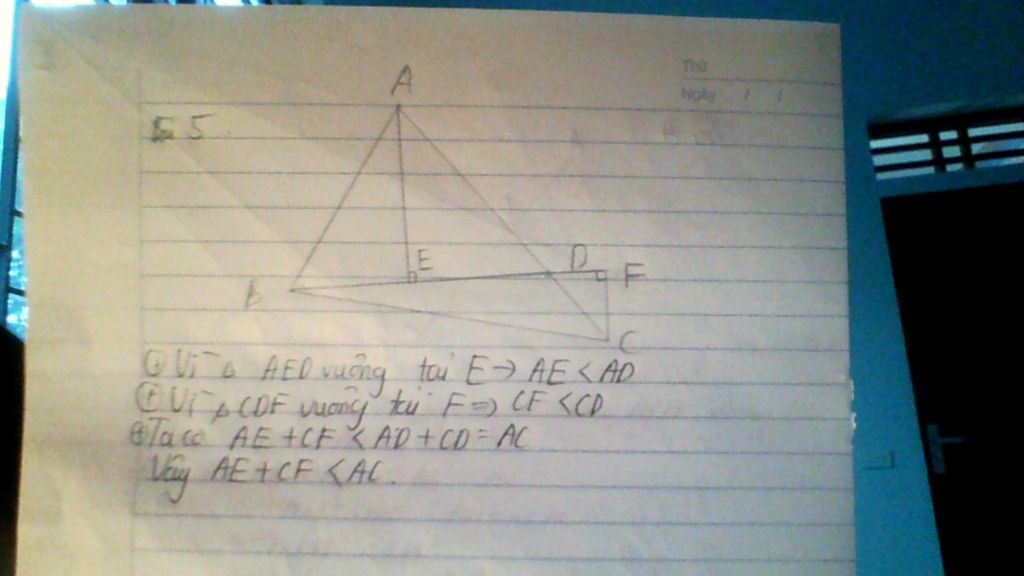 Thứ
Ngày / /
5.
A
E
D
F
B
C
+ Vì Δ AED vuông tại E → AE < AD
+ Vì Δ CDF vuông tại F => CF < CD
+ Ta có AE + CF < AD + CD = AC
Vậy AE + CF < AC.